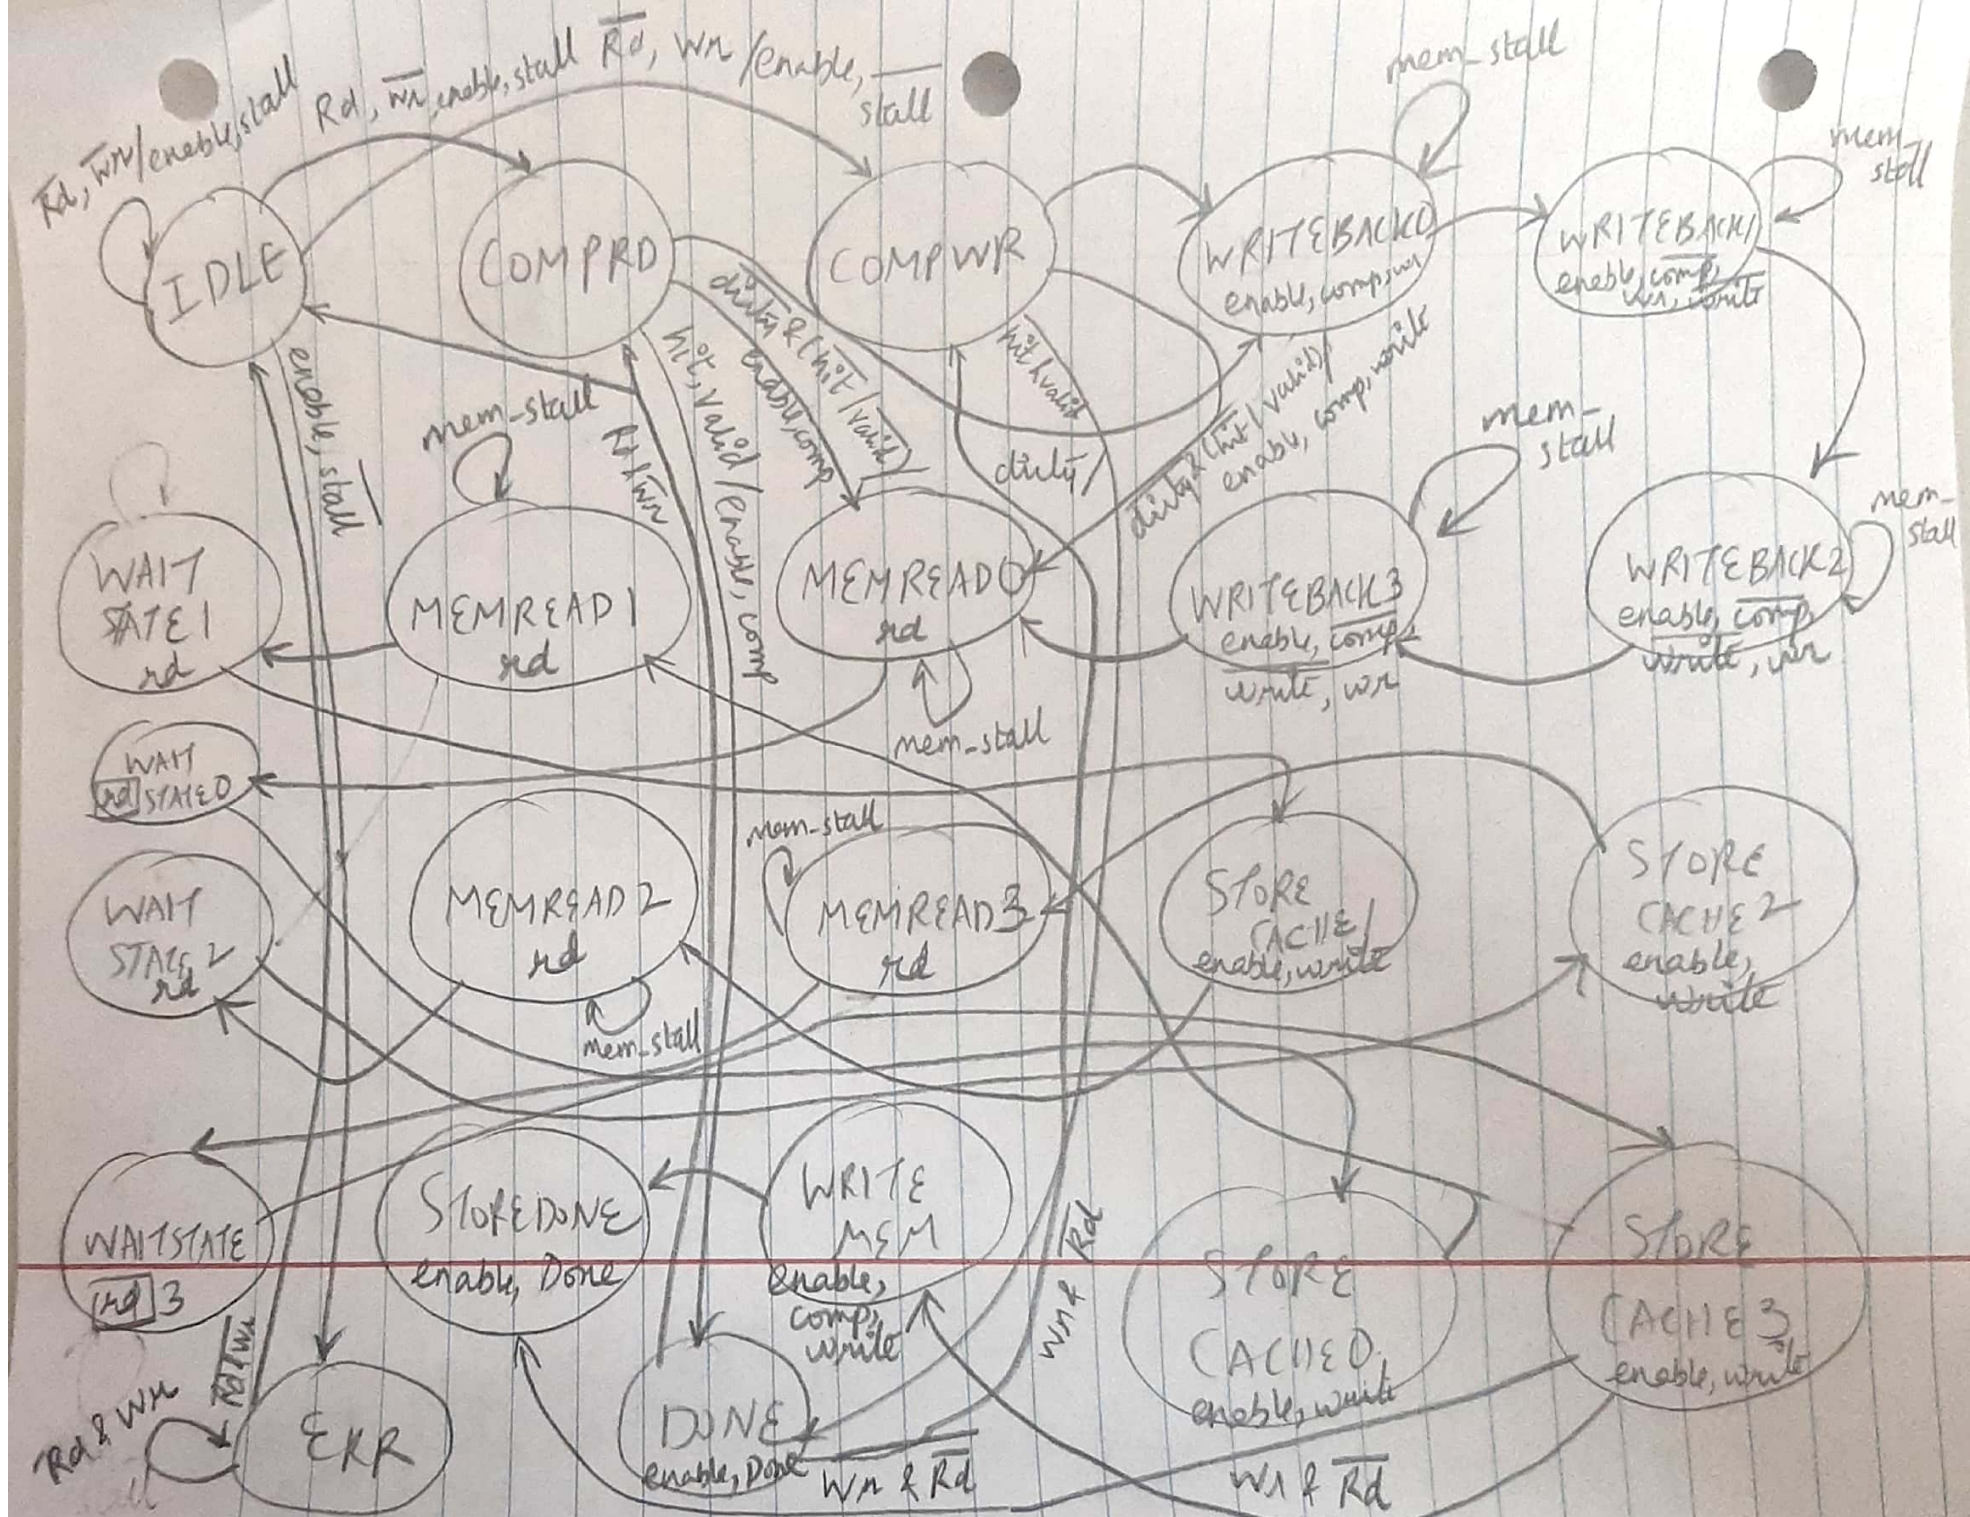 R̅d̅, W̅r̅/enable, stall
Rd, W̅r̅, enable, stall
R̅d̅, Wr/enable,
s̅t̅a̅l̅l̅
mem_stall
mem_
stall
IDLE
COMPRD
COMPWR
WRITEBACK0
enable, comp, wr
WRITEBACK1
enable, c̅o̅m̅p̅,
wr, w̅r̅i̅t̅e̅
enable, s̅t̅a̅l̅l̅
mem_stall
Rd & W̅r̅
hit, valid/enable, comp
enable, comp
hit & valid
dirty/
enable, comp, write
mem_
stall
mem_
stall
WAIT
STATE1
rd
MEMREAD1
rd
MEMREAD0
rd
WRITEBACK3
enable, c̅o̅m̅p̅,
w̅r̅i̅t̅e̅, wr
WRITEBACK2
enable, c̅o̅m̅p̅,
w̅r̅i̅t̅e̅, wr
mem_stall
WAIT
rd STATE0
mem_stall
WAIT
STATE2
rd
MEMREAD2
rd
MEMREAD3
rd
STORE
CACHE1
enable, write
STORE
CACHE2
enable,
write
mem_stall
WAITSTATE
rd 3
STOREDONE
enable, Done
WRITE
MEM
enable,
comp,
write
Wr & R̅d̅
STORE
CACHE0
enable, write
STORE
CACHE3
enable, write
Rd & Wr
ERR
DONE
enable, Done
W̅r̅ & R̅d̅
Wr & R̅d̅